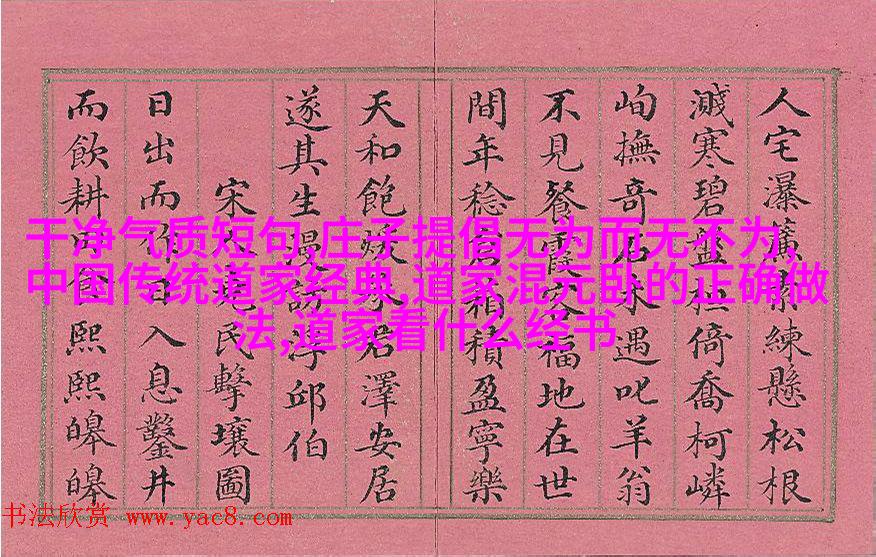 人宅瀑練懸松根
濺寒碧盤桓倚喬柯嶙
峋撫奇石未遇叱羊翁
不見餐霞客福地在世
間年稔倉箱積盈寧樂
天和飽煖承君澤安居
遂其生漫說浮邱伯
宋人堯民擊壤圖
日出而作日入息鑿井
而飲耕田食熙熙皞皞
干净气质短句,庄子提倡无为而无不为,
中国传统道家经典,道家混元卧的正确做
法,道家看什么经书
书法欣赏 www.yac8.com